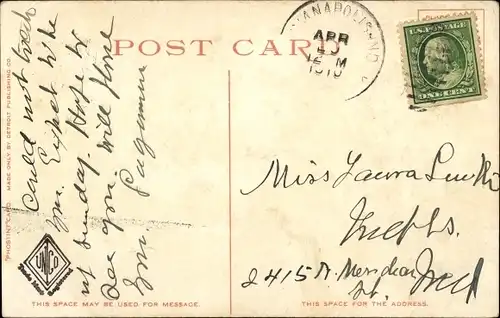 POST CARD
INDIANAPOLIS, IND.
APR
12 M
1910
U.S. POSTAGE
ONE CENT
Could not reach
you. Expect to be
at Sunday. Hope to
see you. Will phone
Miss Laura
Indpls.
2415 N. Meridian
St. Ind
PHOSTINT CARD. MADE ONLY BY DETROIT PUBLISHING CO.
THIS SPACE MAY BE USED FOR MESSAGE.
THIS SPACE FOR THE ADDRESS.